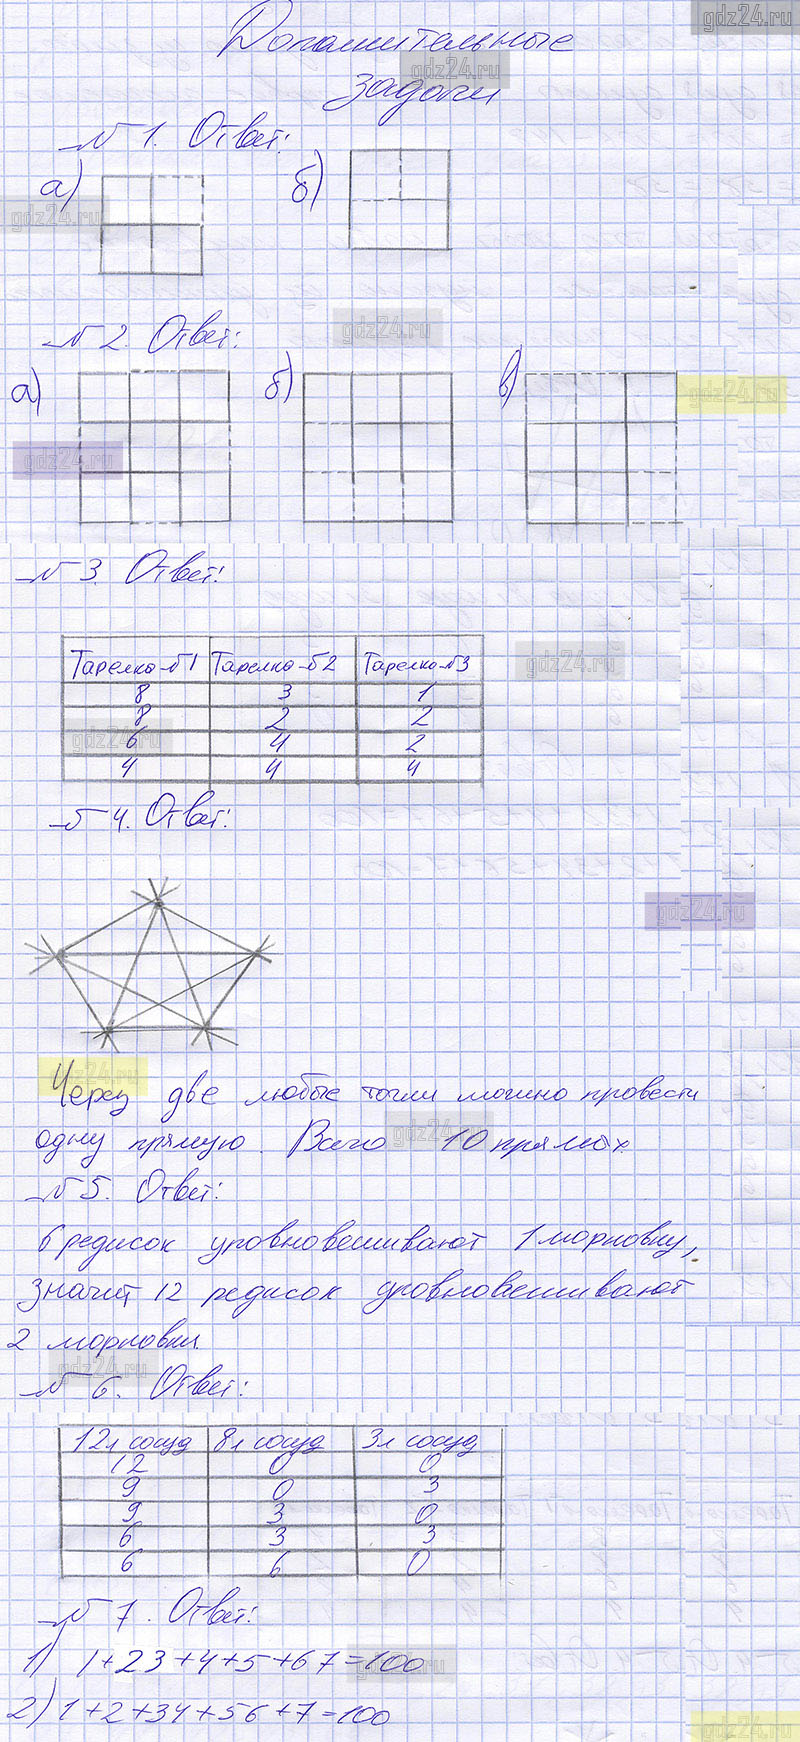 gdz24.ru
Дополнительные
gdz24.ru
задачи
№ 1. Ответ:
а)
б)
gdz24.ru
№ 2. Ответ:
gdz24.ru
а)
б)
в)
gdz24.ru
gdz24.ru
№ 3. Ответ:
gdz24.ru
Тарелка №1 Тарелка №2 Тарелка №3
8 3 1
8 2 2
gdz24.ru
6 4 2
4 4 4
№ 4. Ответ:
gdz24.ru
gdz24.ru
Через две любые точки можно провести
одну прямую. Всего 10 прямых.
gdz24.ru
№ 5. Ответ:
6 редисок уровновешивают 1 морковку,
значит 12 редисок уровновешивают
2 морковки.
gdz24.ru
№ 6. Ответ:
12л сосуд 8л сосуд 3л сосуд
12 0 0
9 0 3
9 3 0
6 3 3
6 6 0
№ 7. Ответ:
1) 1+23+4+5+67=100
gdz24.ru
2) 1+2+34+56+7=100
gdz24.ru